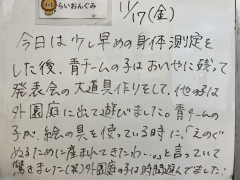 らいおんぐみ
11/17(金)
今日は少し早めの身体測定を
した後、青チームの子はおへやに残って
発表会の大道具作りをして、他の子は
外園庭に出て遊びました。青チームの
子が、絵の具を使っている時に、「えのぐ
ぬるために産まれてきたわ…。」と言っていて
驚きました(笑)外園庭の子は時間遊んできました!